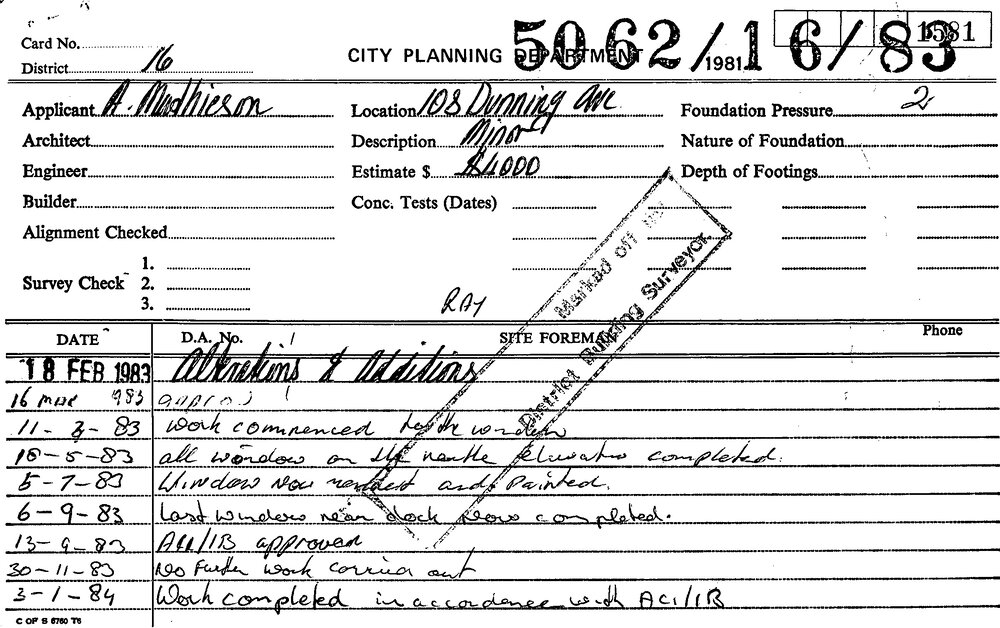 Card No.
District 16
CITY PLANNING DEPARTMENT
5062/1981 16/83
1581
Applicant A. Mathieson
Location 108 Dunning Ave
Foundation Pressure 2
Architect
Description Minor
Nature of Foundation
Engineer
Estimate $ $4000
Depth of Footings
Builder
Conc. Tests (Dates)
Alignment Checked
Survey Check 1.
2.
3.
RAY
Marked off by
District Building Surveyor.
DATE D.A. No. SITE FOREMAN Phone
18 FEB 1983 Alterations & Additions
16 MAR 1983 approved
11-3-83 Work commenced window
18-5-83 all window on the elevation completed.
5-7-83 Window now and Painted.
6-9-83 Last window near dock now completed.
13-9-83 A01/1B approved
30-11-83 No Further work carried out
3-1-84 Work completed in accordance with A01/1B
C OF S 6760 T6